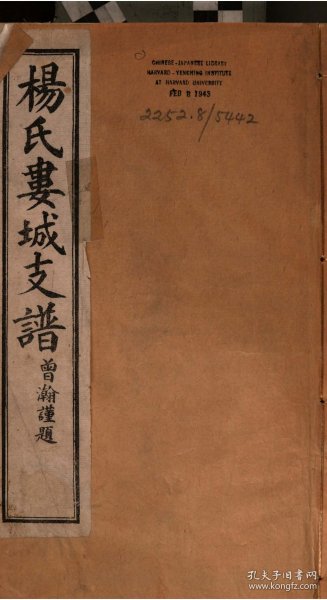 楊氏婁城支譜
曾瀚謹題
CHINESE-JAPANESE LIBRARY
HARVARD-YENCHING INSTITUTE
AT HARVARD UNIVERSITY
FEB 8 1943
2252.8/5442
孔夫子旧书网
www.kongfz.com